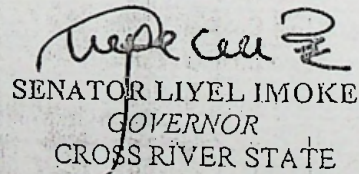 SENATOR LIYEL IMOKE
GOVERNOR
CROSS RIVER STATE